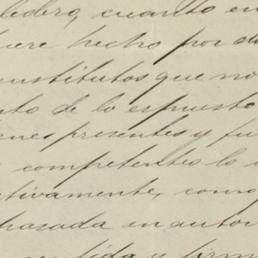 ledero, cuanto en
hecho por
nstitutos que no
to de lo espuesto
enes presentes y fu
competentes lo
tivamente, como
basada en autor